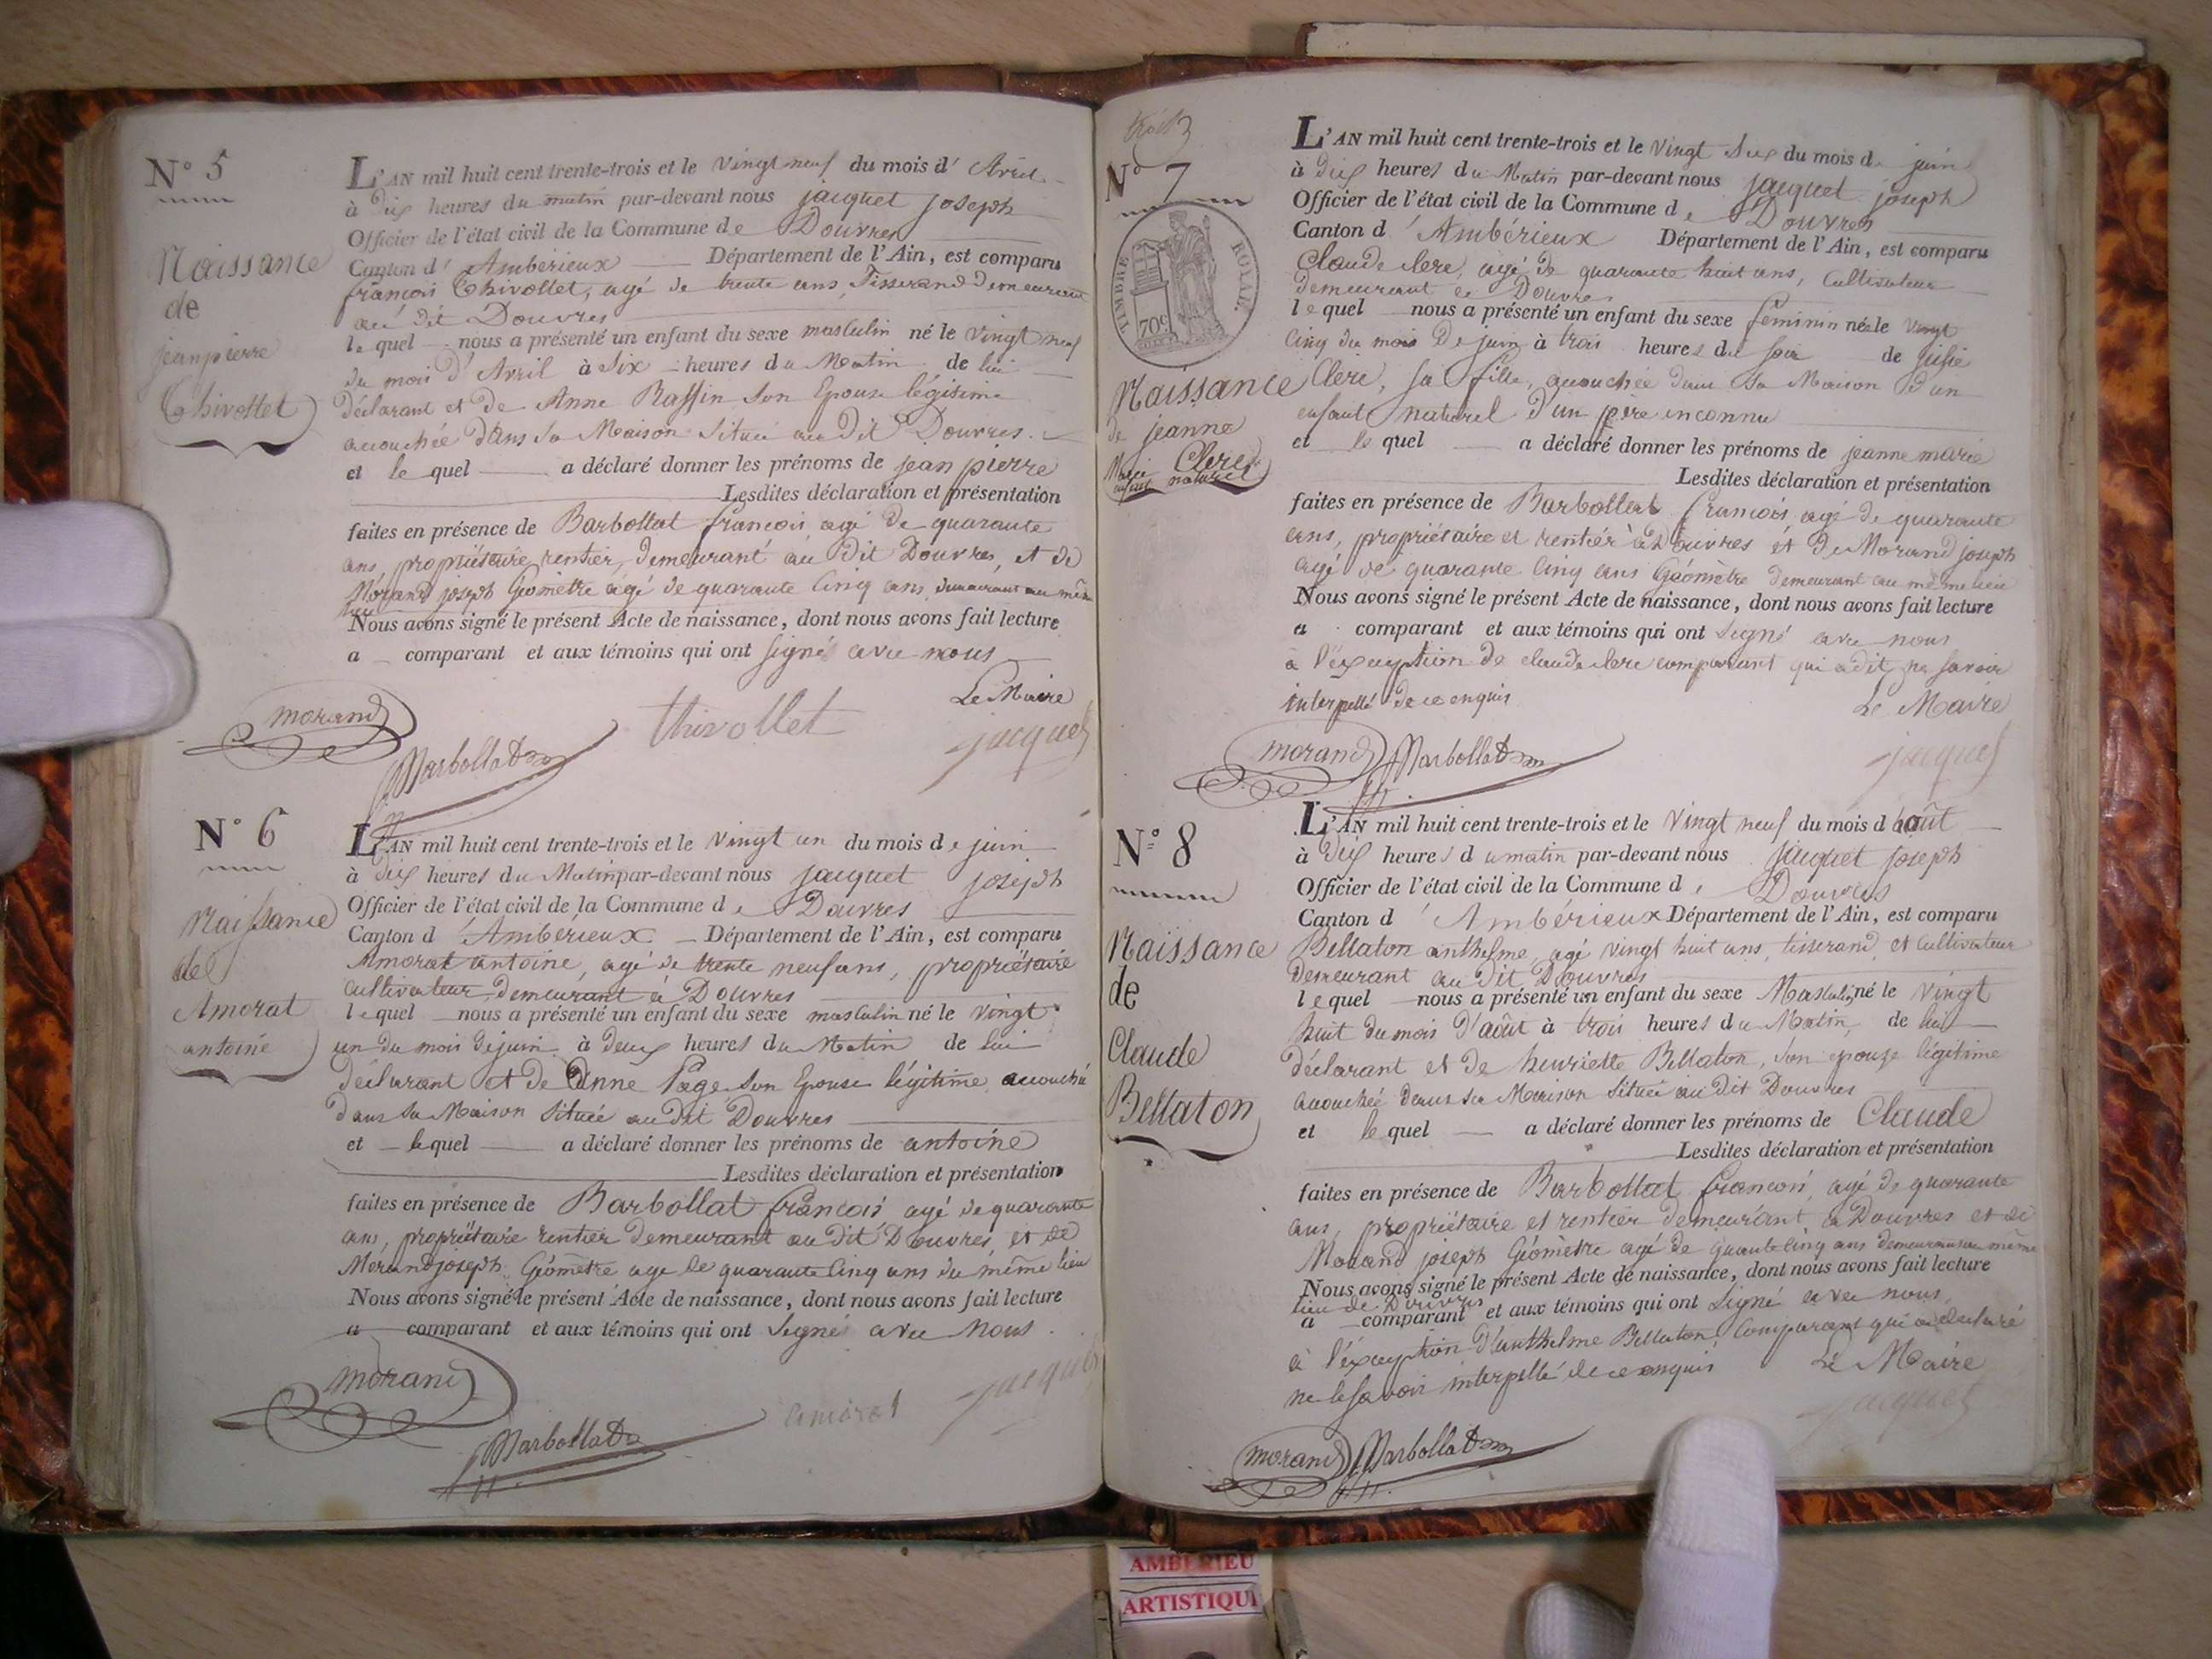 N° 5
Naissance
de
jean pierre
Thivollet
L'AN mil huit cent trente-trois et le vingt neuf du mois d' Avril
à dix heures du matin par-devant nous jacquet joseph
Officier de l'état civil de la Commune de Douvres
Canton d' Ambérieux Département de l'Ain, est comparu
françois Thivollet, agé de trente ans, Tisserand demeurant
au dit Douvres
lequel nous a présenté un enfant du sexe masculin né le vingt neuf
du mois d'Avril à six heures du Matin de lui
déclarant et de Anne Raffin son Epouse légitime
accouchée dans sa Maison située au dit Douvres.
et le quel a déclaré donner les prénoms de jean pierre
Lesdites déclaration et présentation
faites en présence de Barbollat françois agé de quarante
ans, propriétaire rentier, demeurant au dit Douvres, et de
Morand joseph Géomètre agé de quarante cinq ans, demeurant au même
lieu
Nous avons signé le présent Acte de naissance, dont nous avons fait lecture
a comparant et aux témoins qui ont signé avec nous
Le Maire
morand
Barbollat
thivollet
jacquet
N° 6
Naissance
de
Amorat
antoine
L'AN mil huit cent trente-trois et le vingt un du mois de juin
à dix heures du Matin par-devant nous jacquet joseph
Officier de l'état civil de la Commune de Douvres
Canton d'Ambérieux Département de l'Ain, est comparu
Amorat antoine, agé de trente neuf ans, propriétaire
cultivateur demeurant à Douvres
lequel nous a présenté un enfant du sexe masculin né le vingt
un du mois de juin à deux heures du Matin de lui
déclarant et de Anne Page son Epouse légitime accouchée
dans sa Maison située au dit Douvres
et le quel a déclaré donner les prénoms de antoine
Lesdites déclaration et présentation
faites en présence de Barbollat françois agé de quarante
ans, propriétaire rentier demeurant au dit Douvres, et de
Morand joseph Géomètre age de quarante cinq ans du même lieu
Nous avons signé le présent Acte de naissance, dont nous avons fait lecture
a comparant et aux témoins qui ont signés avec nous.
morand
Barbollat
amorat
jacquet
N° 7
TIMBRE ROYAL.
70c
Naissance
de jeanne
Marie Clerc
enfant naturel
L'AN mil huit cent trente-trois et le vingt six du mois de juin
à dix heures du Matin par-devant nous jacquet joseph
Officier de l'état civil de la Commune de Douvres
Canton d'Ambérieux Département de l'Ain, est comparu
Claude clerc, agé de quarante huit ans, cultivateur
demeurant à Douvres
lequel nous a présenté un enfant du sexe féminin née le vingt
cinq du mois de juin à trois heures du soir de julie
Clerc, sa fille, accouchée dans sa Maison d'un
enfant naturel d'un père inconnu
et le quel a déclaré donner les prénoms de jeanne marie
Lesdites déclaration et présentation
faites en présence de Barbollat françois, agé de quarante
ans, propriétaire et rentier à Douvres et de Morand joseph
agé de quarante cinq ans Géomètre demeurant au même lieu
Nous avons signé le présent Acte de naissance, dont nous avons fait lecture
a comparant et aux témoins qui ont signé avec nous
à l'éxception de claude clerc comparant qui a dit ne savoir
interpellé de ce enquis
Le Maire
morand
Barbollat
jacquet
N° 8
Naissance
de
Claude
Bellaton
L'AN mil huit cent trente-trois et le vingt neuf du mois d'août
à dix heures du matin par-devant nous jacquet joseph
Officier de l'état civil de la Commune de Douvres
Canton d'Ambérieux Département de l'Ain, est comparu
Bellaton anthelme, agé vingt huit ans, tisserand et cultivateur
demeurant au dit Douvres
lequel nous a présenté un enfant du sexe Masculin né le vingt
huit du mois d'août à trois heures du Matin, de lui
déclarant et de henriette Bellaton, son epouse légitime
accouchée dans sa Maison située au dit Douvres
et le quel a déclaré donner les prénoms de Claude
Lesdites déclaration et présentation
faites en présence de Barbollat françois, agé de quarante
ans, propriétaire et rentier demeurant à Douvres et de
Morand joseph Géomètre agé de quarante cinq ans demeurant au même
Nous avons signé le présent Acte de naissance, dont nous avons fait lecture
lieu de Douvres
a comparant et aux témoins qui ont signé avec nous,
à l'éxception d'anthelme Bellaton comparant qui a déclaré
ne le savoir interpellé de ce enquis
Le Maire
jacquet
morand
Barbollat
AMBERIEU
ARTISTIQU